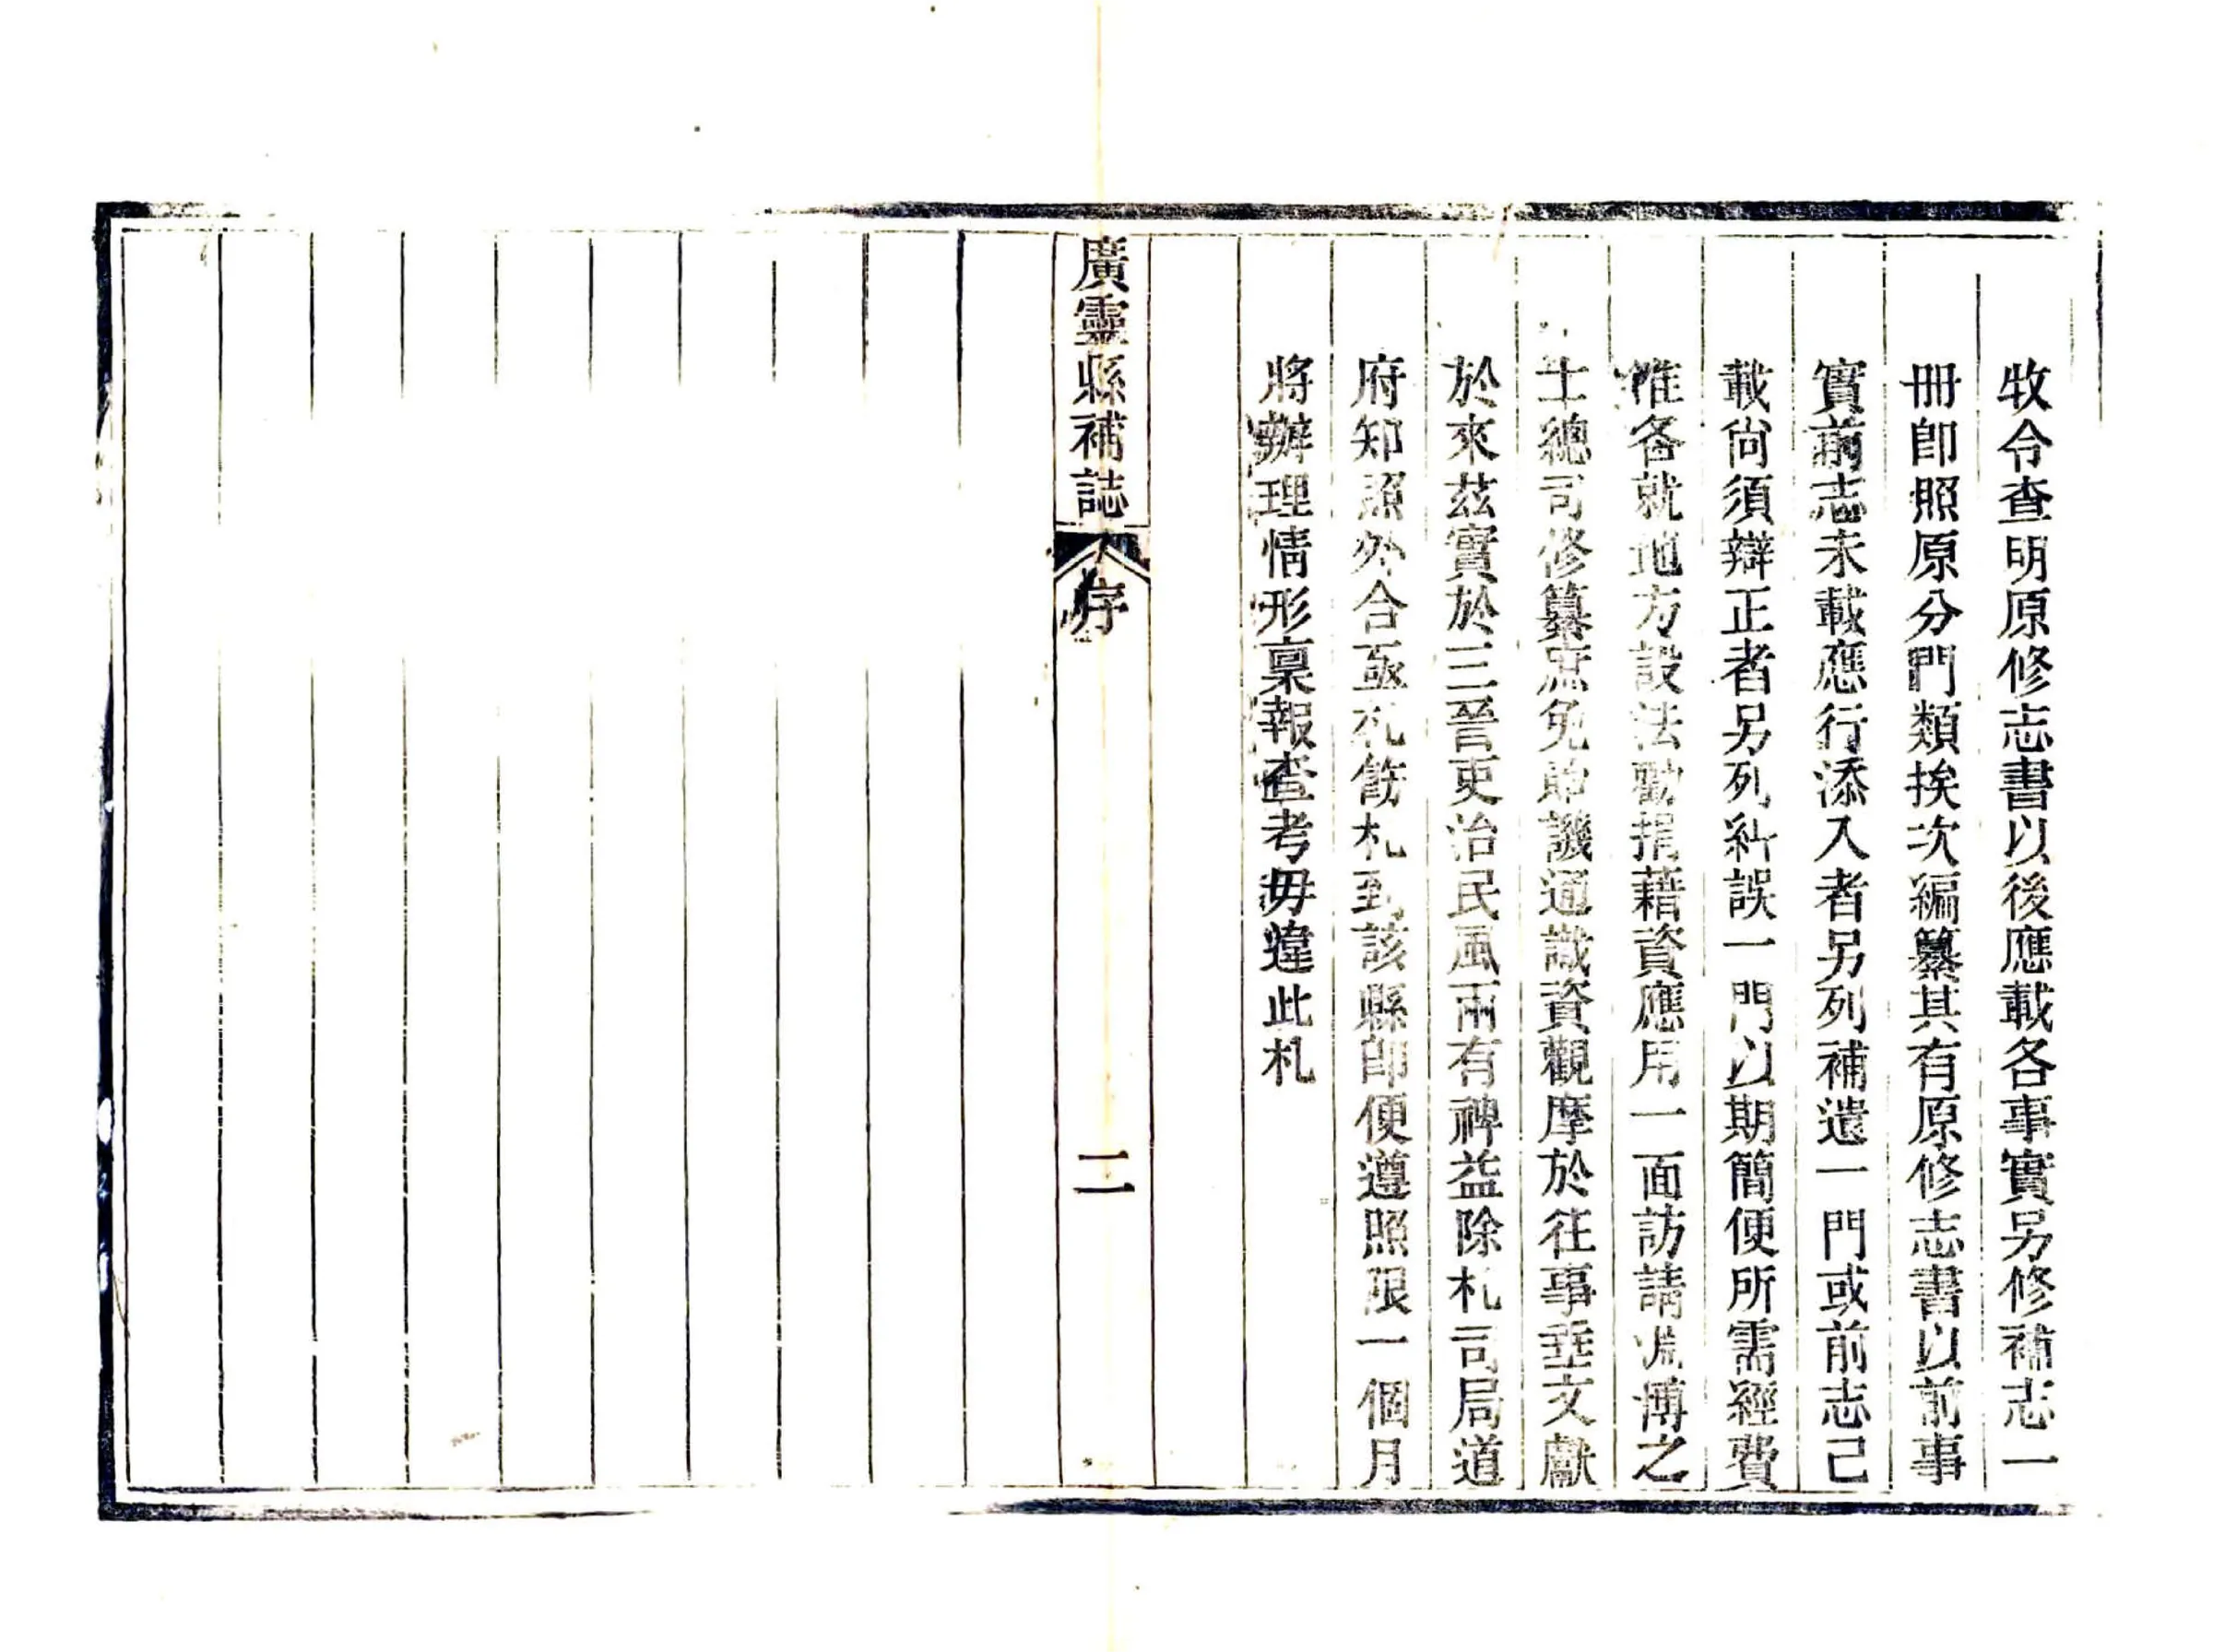 牧令查明原修志書以後應載各事實另修補志一
冊卽照原分門類挨次編纂其有原修志書以前事
實前志未載應行添入者另列補遺一門或前志己
載尙須辯正者另列糾誤一門以期簡便所需經費
准各就地方設法勸捐藉資應用一面訪請淵博之
士總司修纂庶免貽譏通識資觀摩於往事垂文獻
於來茲實於三晉吏治民風兩有裨益除札司局道
府知照外合亟札飭札到該縣卽便遵照限一個月
將辦理情形稟報查考毋違此札
廣靈縣補誌 序 二